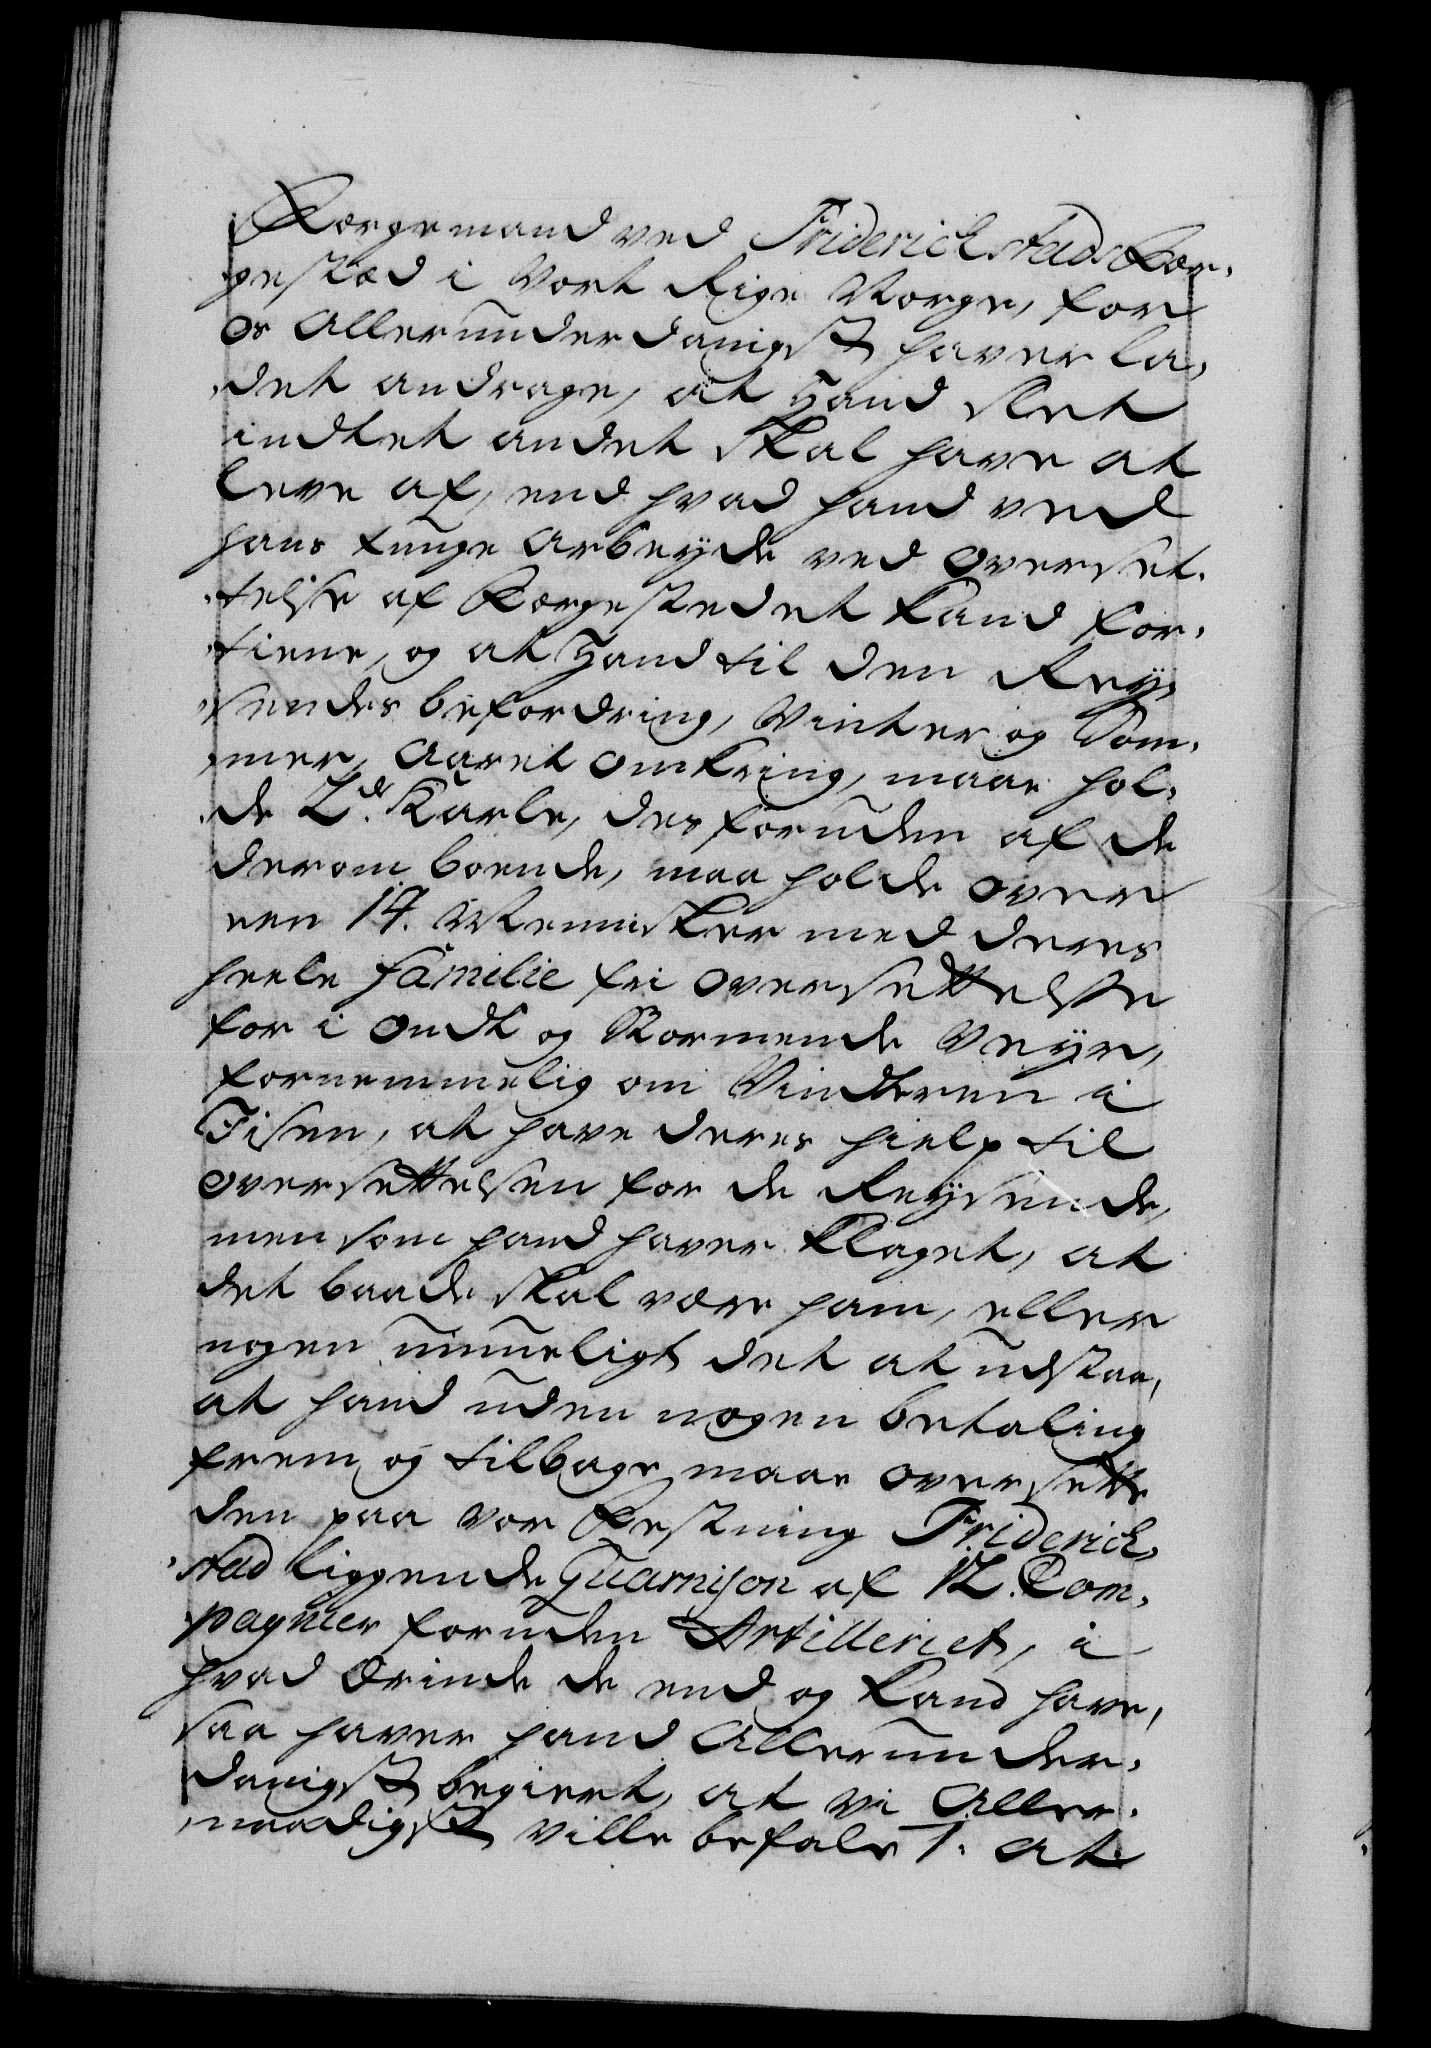 Færgemand ved Friderichstads Fær-
gestæd i Vort Rige Norge, for
os allerunderdanigst haver la-
det andrage, at Hand slet
indtet andet skal have at
leve af, end hvad hand ved
hans tunge arbeyde ved overset-
telse af Færgestedet kand for-
tiene, og at Hand til den Rey-
sendes befordring, Vinter og Som-
mer, aaret omkring, maae hol-
de 2de Karle, desforuden af de
derom boende, maa holde over
een 14. Mennisker med deres
heele familie fri oversettelse
for i ondt og stormende Veyr,
fornemmelig om Vinteren i
Iisen, at have deres hielp til
oversettelsen for de Reysende,
men som hand haver klaget, at
det baade skal være ham, eller
nogen umueligt det at udstaa,
at hand uden nogen betaling
frem og tilbage maae oversette
den paa vor Festning Friderich-
stad liggende Guarnison af 12. Com-
pagnier foruden Artilleriet, i
hvad Ærinde de end og kand have,
saa haver hand allerunder-
danigst begiert, at vi aller-
naadigst ville befale 1. at